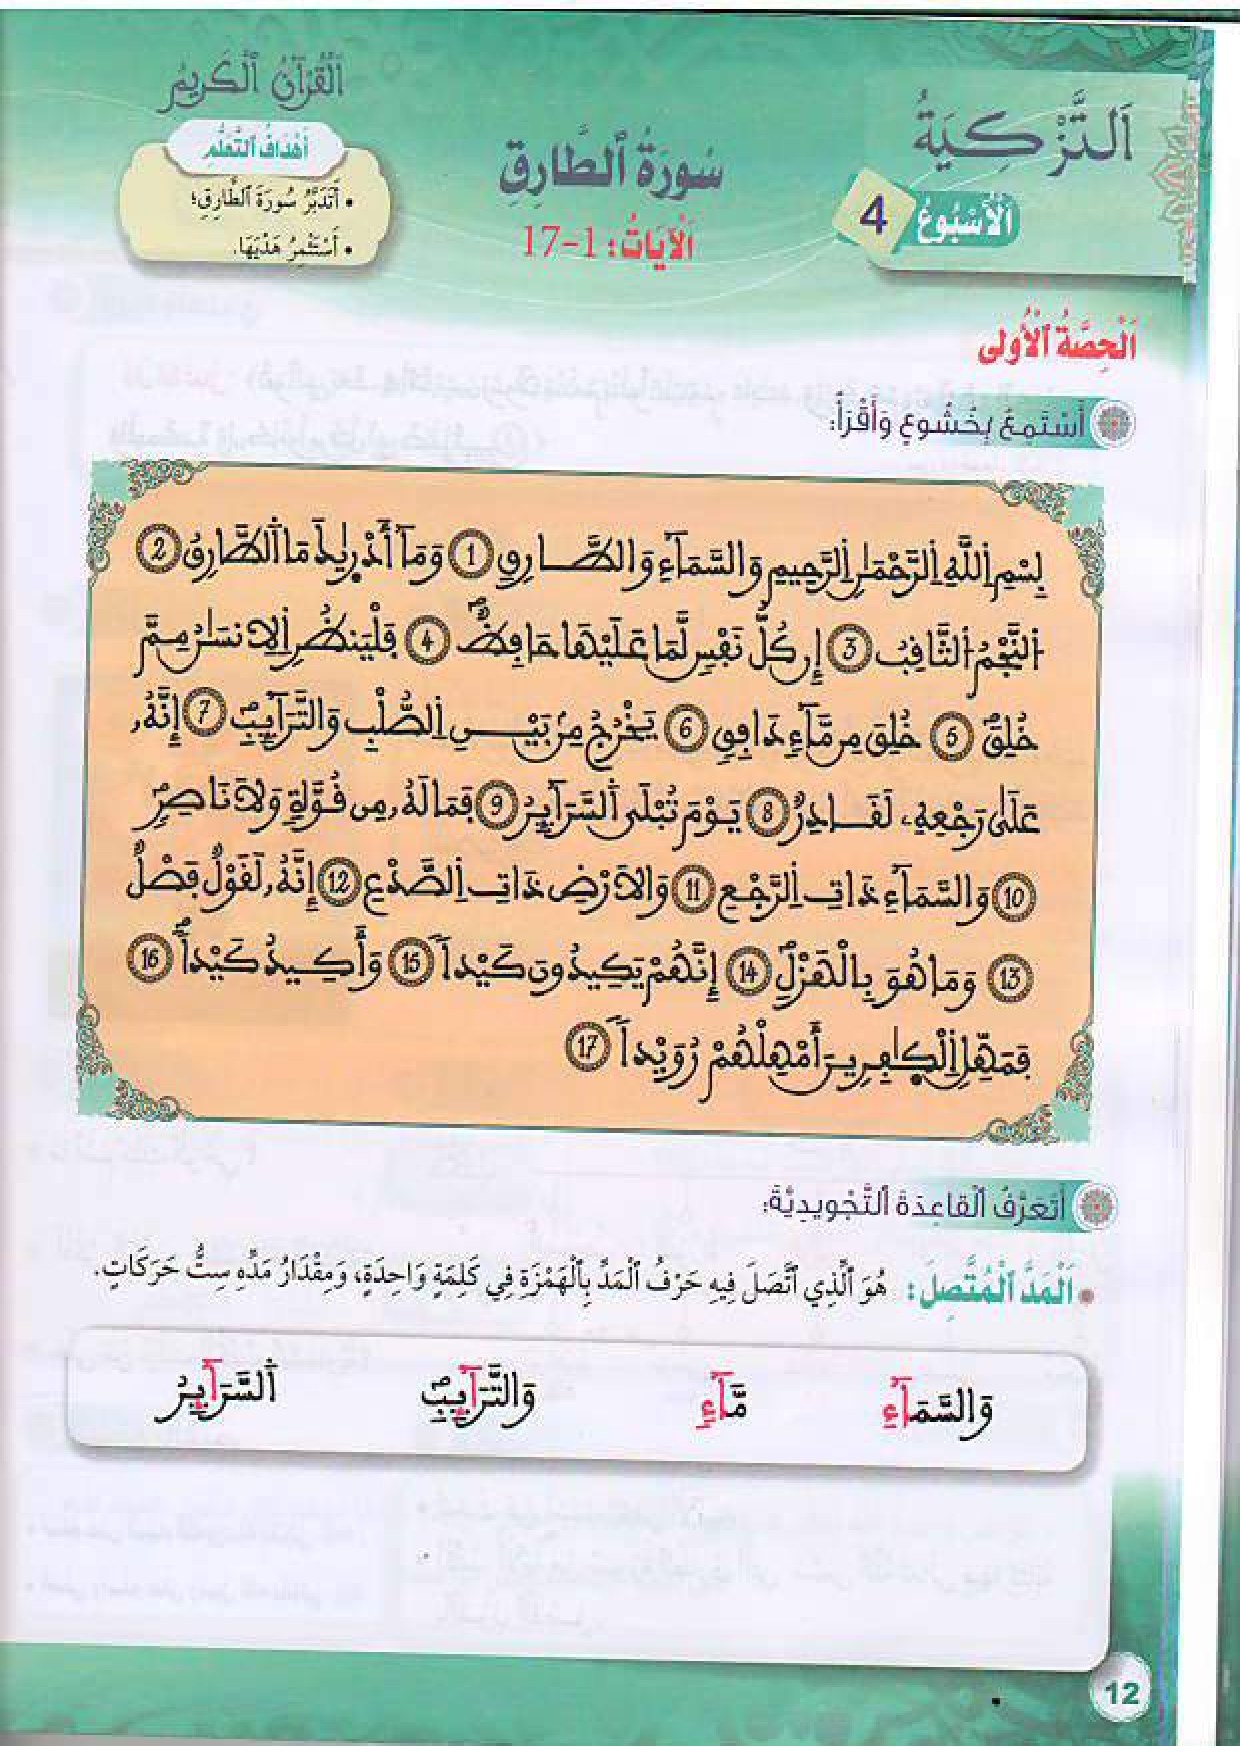 اَلتَّزْكِيَةُ
اَلْقُرْآنُ اَلْكَرِيمُ
اَلْأُسْبُوعُ 4
سُورَةُ اَلطَّارِقِ
اَلْآيَاتُ: 1-17
أَهْدَافُ اَلتَّعَلُّمِ
• أَتَدَبَّرُ سُورَةَ اَلطَّارِقِ؛
• أَسْتَثْمِرُ هَدْيَهَا.
اَلْحِصَّةُ اَلْأُولَى
أَسْتَمِعُ بِخُشُوعٍ وَأَقْرَأُ:
بِسْمِ اِللَّهِ اِلرَّحْمَٰنِ اِلرَّحِيمِ وَالسَّمَآءِ وَالطَّارِقِ 1 وَمَآ أَدْر۪يٰكَ مَا اَلطَّارِقُ 2
اُلنَّجْمُ اُلثَّاقِبُ 3 إِن كُلُّ نَفْسٍ لَّمَا عَلَيْهَا حَافِظٌ 4 فَلْيَنظُرِ اِلِانسَٰنُ مِمَّ
خُلِقَ 5 خُلِقَ مِن مَّآءٍ دَافِقٍ 6 يَخْرُجُ مِنۢ بَيْنِ اِلصُّلْبِ وَالتَّرَآئِبِ 7 إِنَّهُۥ
عَلَىٰ رَجْعِهِۦ لَقَادِرٌ 8 يَوْمَ تُبْلَى اَلسَّرَآئِرُ 9 فَمَا لَهُۥ مِن قُوَّةٍ وَلَا نَاصِرٍ
10 وَالسَّمَآءِ ذَاتِ اِلرَّجْعِ 11 وَالَارْضِ ذَاتِ اِلصَّدْعِ 12 إِنَّهُۥ لَقَوْلٌ فَصْلٌ
13 وَمَا هُوَ بِالْهَزْلِ 14 إِنَّهُمْ يَكِيدُونَ كَيْداً 15 وَأَكِيدُ كَيْداً 16
فَمَهِّلِ اِلْكٰفِرِينَ أَمْهِلْهُمْ رُوَيْداً 17
أَتَعَرَّفُ اَلْقَاعِدَةَ اَلتَّجْوِيدِيَّةَ:
• اَلْمَدُّ اَلْمُتَّصِلُ: هُوَ اَلَّذِي اَتَّصَلَ فِيهِ حَرْفُ اَلْمَدِّ بِالْهَمْزَةِ فِي كَلِمَةٍ وَاحِدَةٍ، وَمِقْدَارُ مَدِّهِ سِتُّ حَرَكَاتٍ.
وَالسَّمَآءِ مَّآءٍ وَالتَّرَآئِبِ اَلسَّرَآئِرُ
12